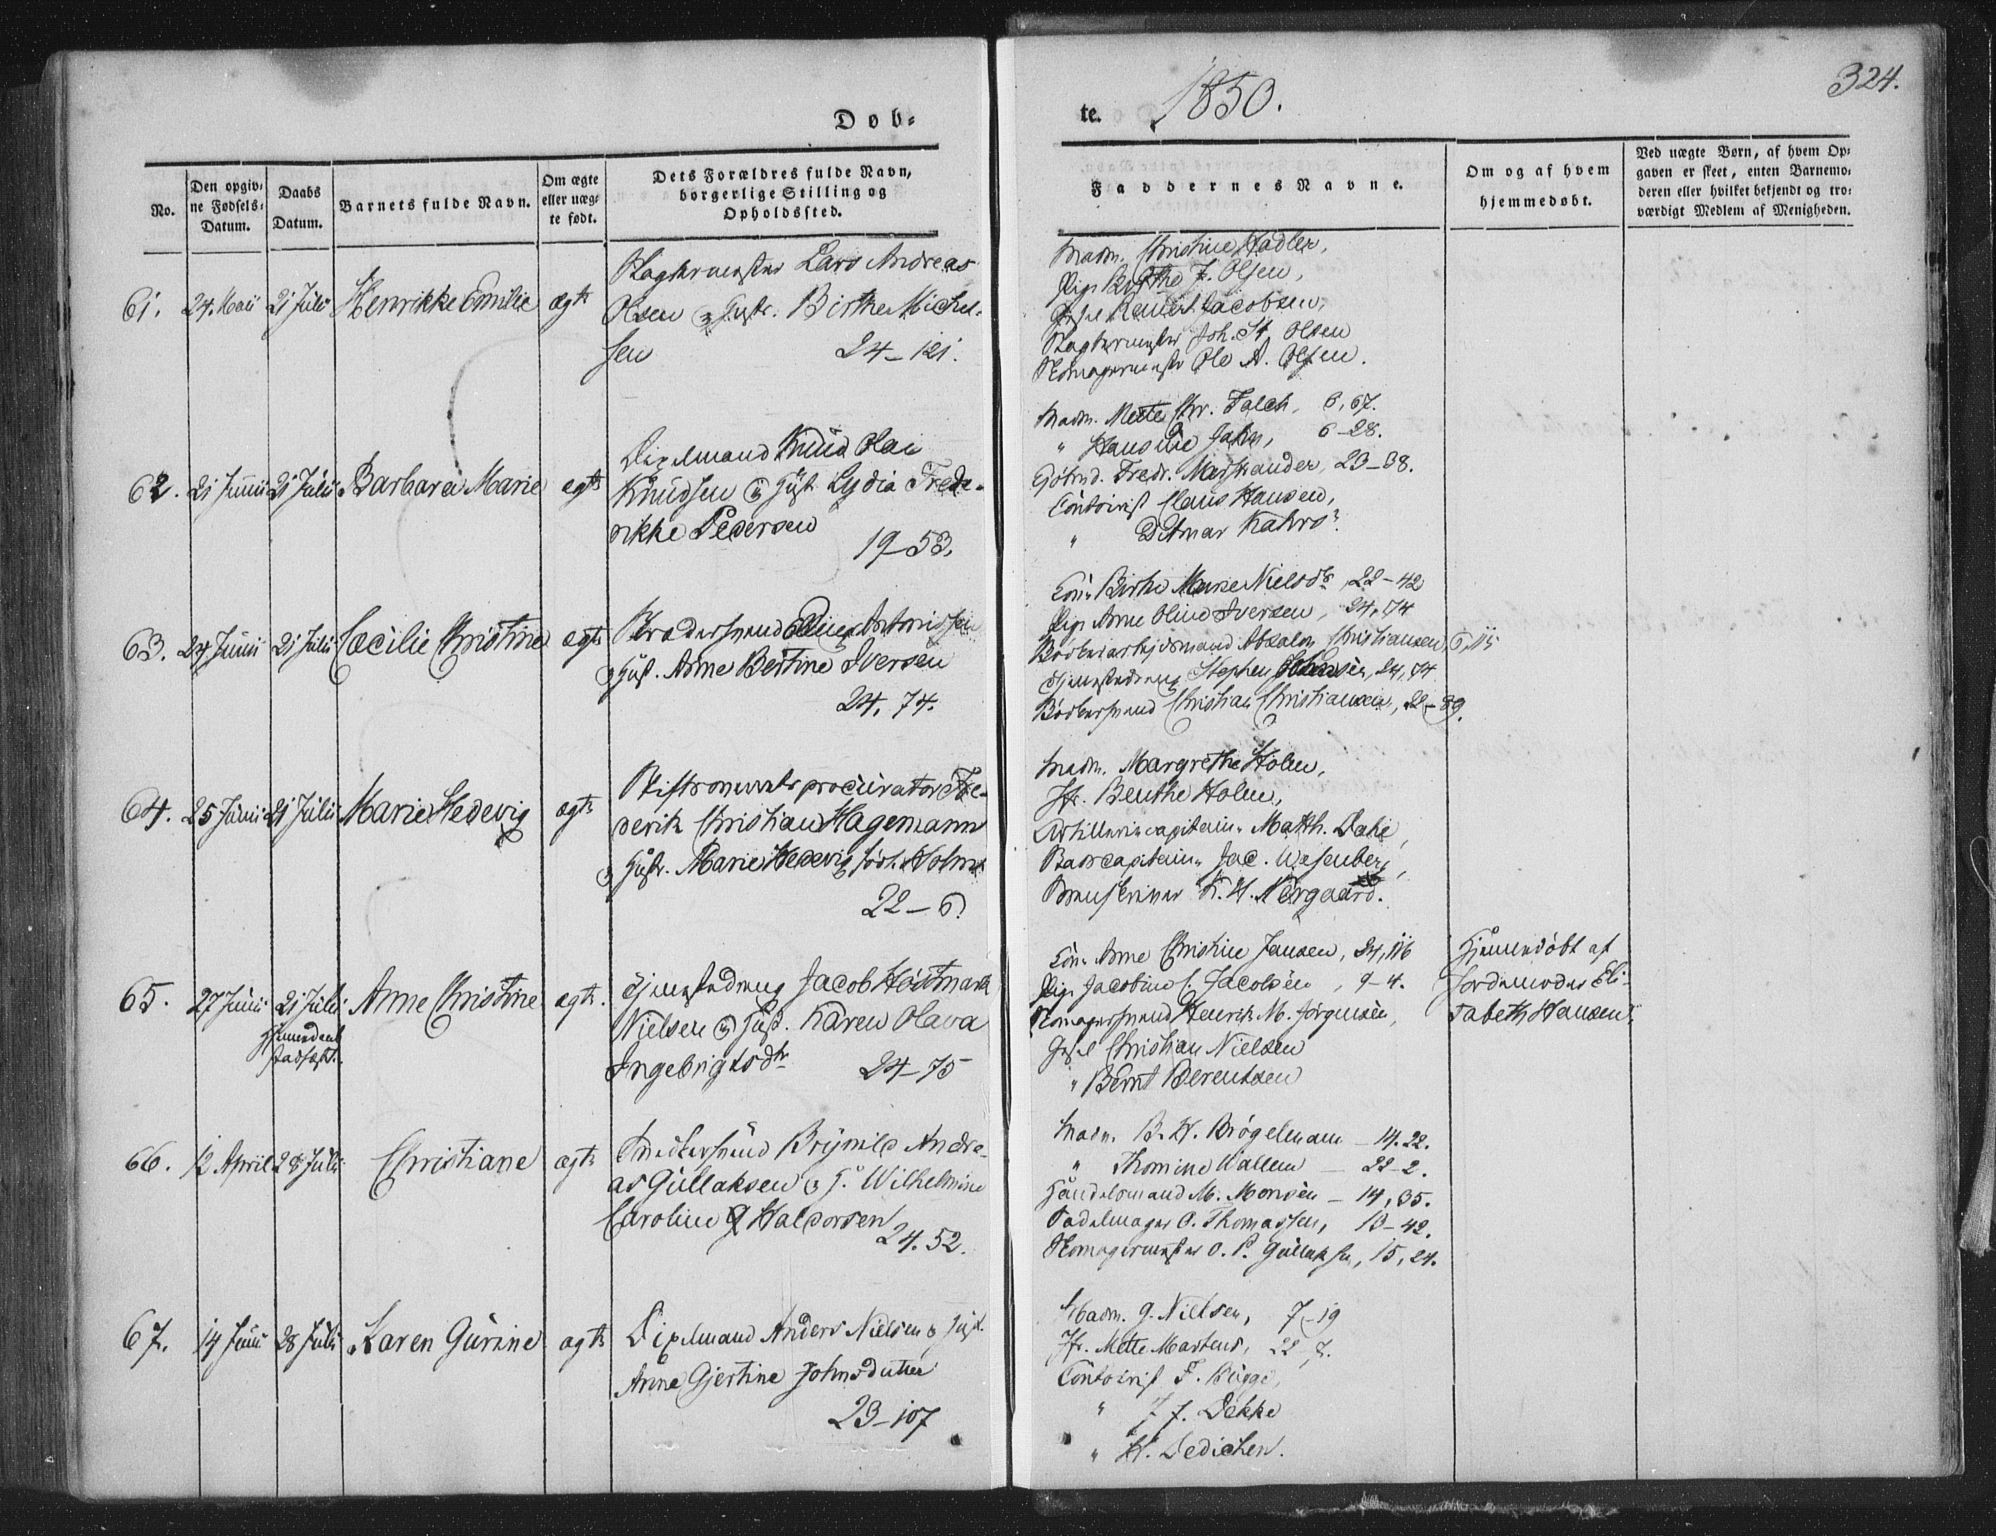 324.
Døb-
te. 1850.
No.
Den opgiv-
ne Fødsels-
Datum.
Daabs
Datum.
Barnets fulde Navn.
Om ægte
eller uæg-
te født.
Dets Forældres fulde Navn,
borgerlige Stilling og
Opholdssted.
Faddernes Navne.
Om og af hvem
hjemmedøbt.
Ved uægte Børn, af hvem Op-
gaven er skeet, enten Barnemo-
deren eller hvilket bekjendt og tro-
værdigt Medlem af Menigheden.
61. 24. Maii 21 Julii Henrikke Emilie ægte
Slagtermester Lars Andreas
Olsen Hustr. Birthe Michel-
sen 24-121.
Madm. Christine Hadler,
Pige Birthe J. Olsen,
Jacobsen,
Slagtermester Joh. St. Olsen
Skomagermester Ole A. Olsen.
62. 21 Junii 21 Julii Barbara Marie ægte
Dixelmand Knud Olai
Knudsen Hust. Lydia Frede-
rikke Pedersen
19-53.
Madm. Mette Chr. Falch, 6, 67.
" Hansine Jahn, 6-28.
Fredr. Marstrander, 23-38.
Contoirist Claus Hansen,
" Ditmar Kahrs.
63. 24 Junii 21 Julii Cæcilie Christine ægte
Antonissen
Hust. Anne Bertine Iversen
24. 74.
Kon. Birthe Marie Nielsdr 22-42
Pige Anne Oline Iversen, 24, 74
Absalon Christiansen, 6, 115
Stephen Johnsen, 24, 74
Bødkersvend Christian Christiansen, 22-39.
64. 25 Junii 21 Julii Marie Hedevig ægte
procurator Fre-
derik Christian Hagemann
Hustr. Marie Hedevig født Holm
22-6.
Madm. Margrethe Holm,
Jfr. Benthe Holm,
Artilleriecapitain Matth. Dahl,
capitain Jac. Wesenberg,
K. H. Nergaard.
65. 27 Junii 21 Julii Anne Christine ægte.
Hjemmedaab
stadfæst.
Tjenestedreng Jacob Høstmark
Nielsen Hust. Karen Olava
Ingebrigtsdtr 24-75
Kon. Anne Christine Jansen, 24, 116
Pige Jacobine C. Jacobsen, 9-4.
Skomagersvend Henrik M. Jørgensen,
Christian Nielsen
" Bernt Berentsen
Hjemmedøbt af
Jordemoder Eli-
sabeth Hansen.
66. 12 April 28 Julii Christiane ægte
Snedkersvend Brynild Andre-
as Gullaksen H. Wilhelmine
Caroline G Halvorsen
24. 52.
Madm. B. H. Brøgelmann - 14. 22.
" Thomine Wallem - 22-2.
Handelsmand M. Monsen - 14, 35.
Sadelmager O. Thomassen, 13-42.
Skomagermester O. P. Gullaksen, 15, 24.
67. 14 Junii 28 Julii Karen Gurine ægte
Dixelmand Anders Nielsen Hust.
Anne Gjertine Johnsdatter
23-107
Madm. G. Nielsen, 7-19
Jfr. Mette Martens, 22-7.
Contoirist F. Bugge,
" J. J. Dekke
" H. Dedichen.